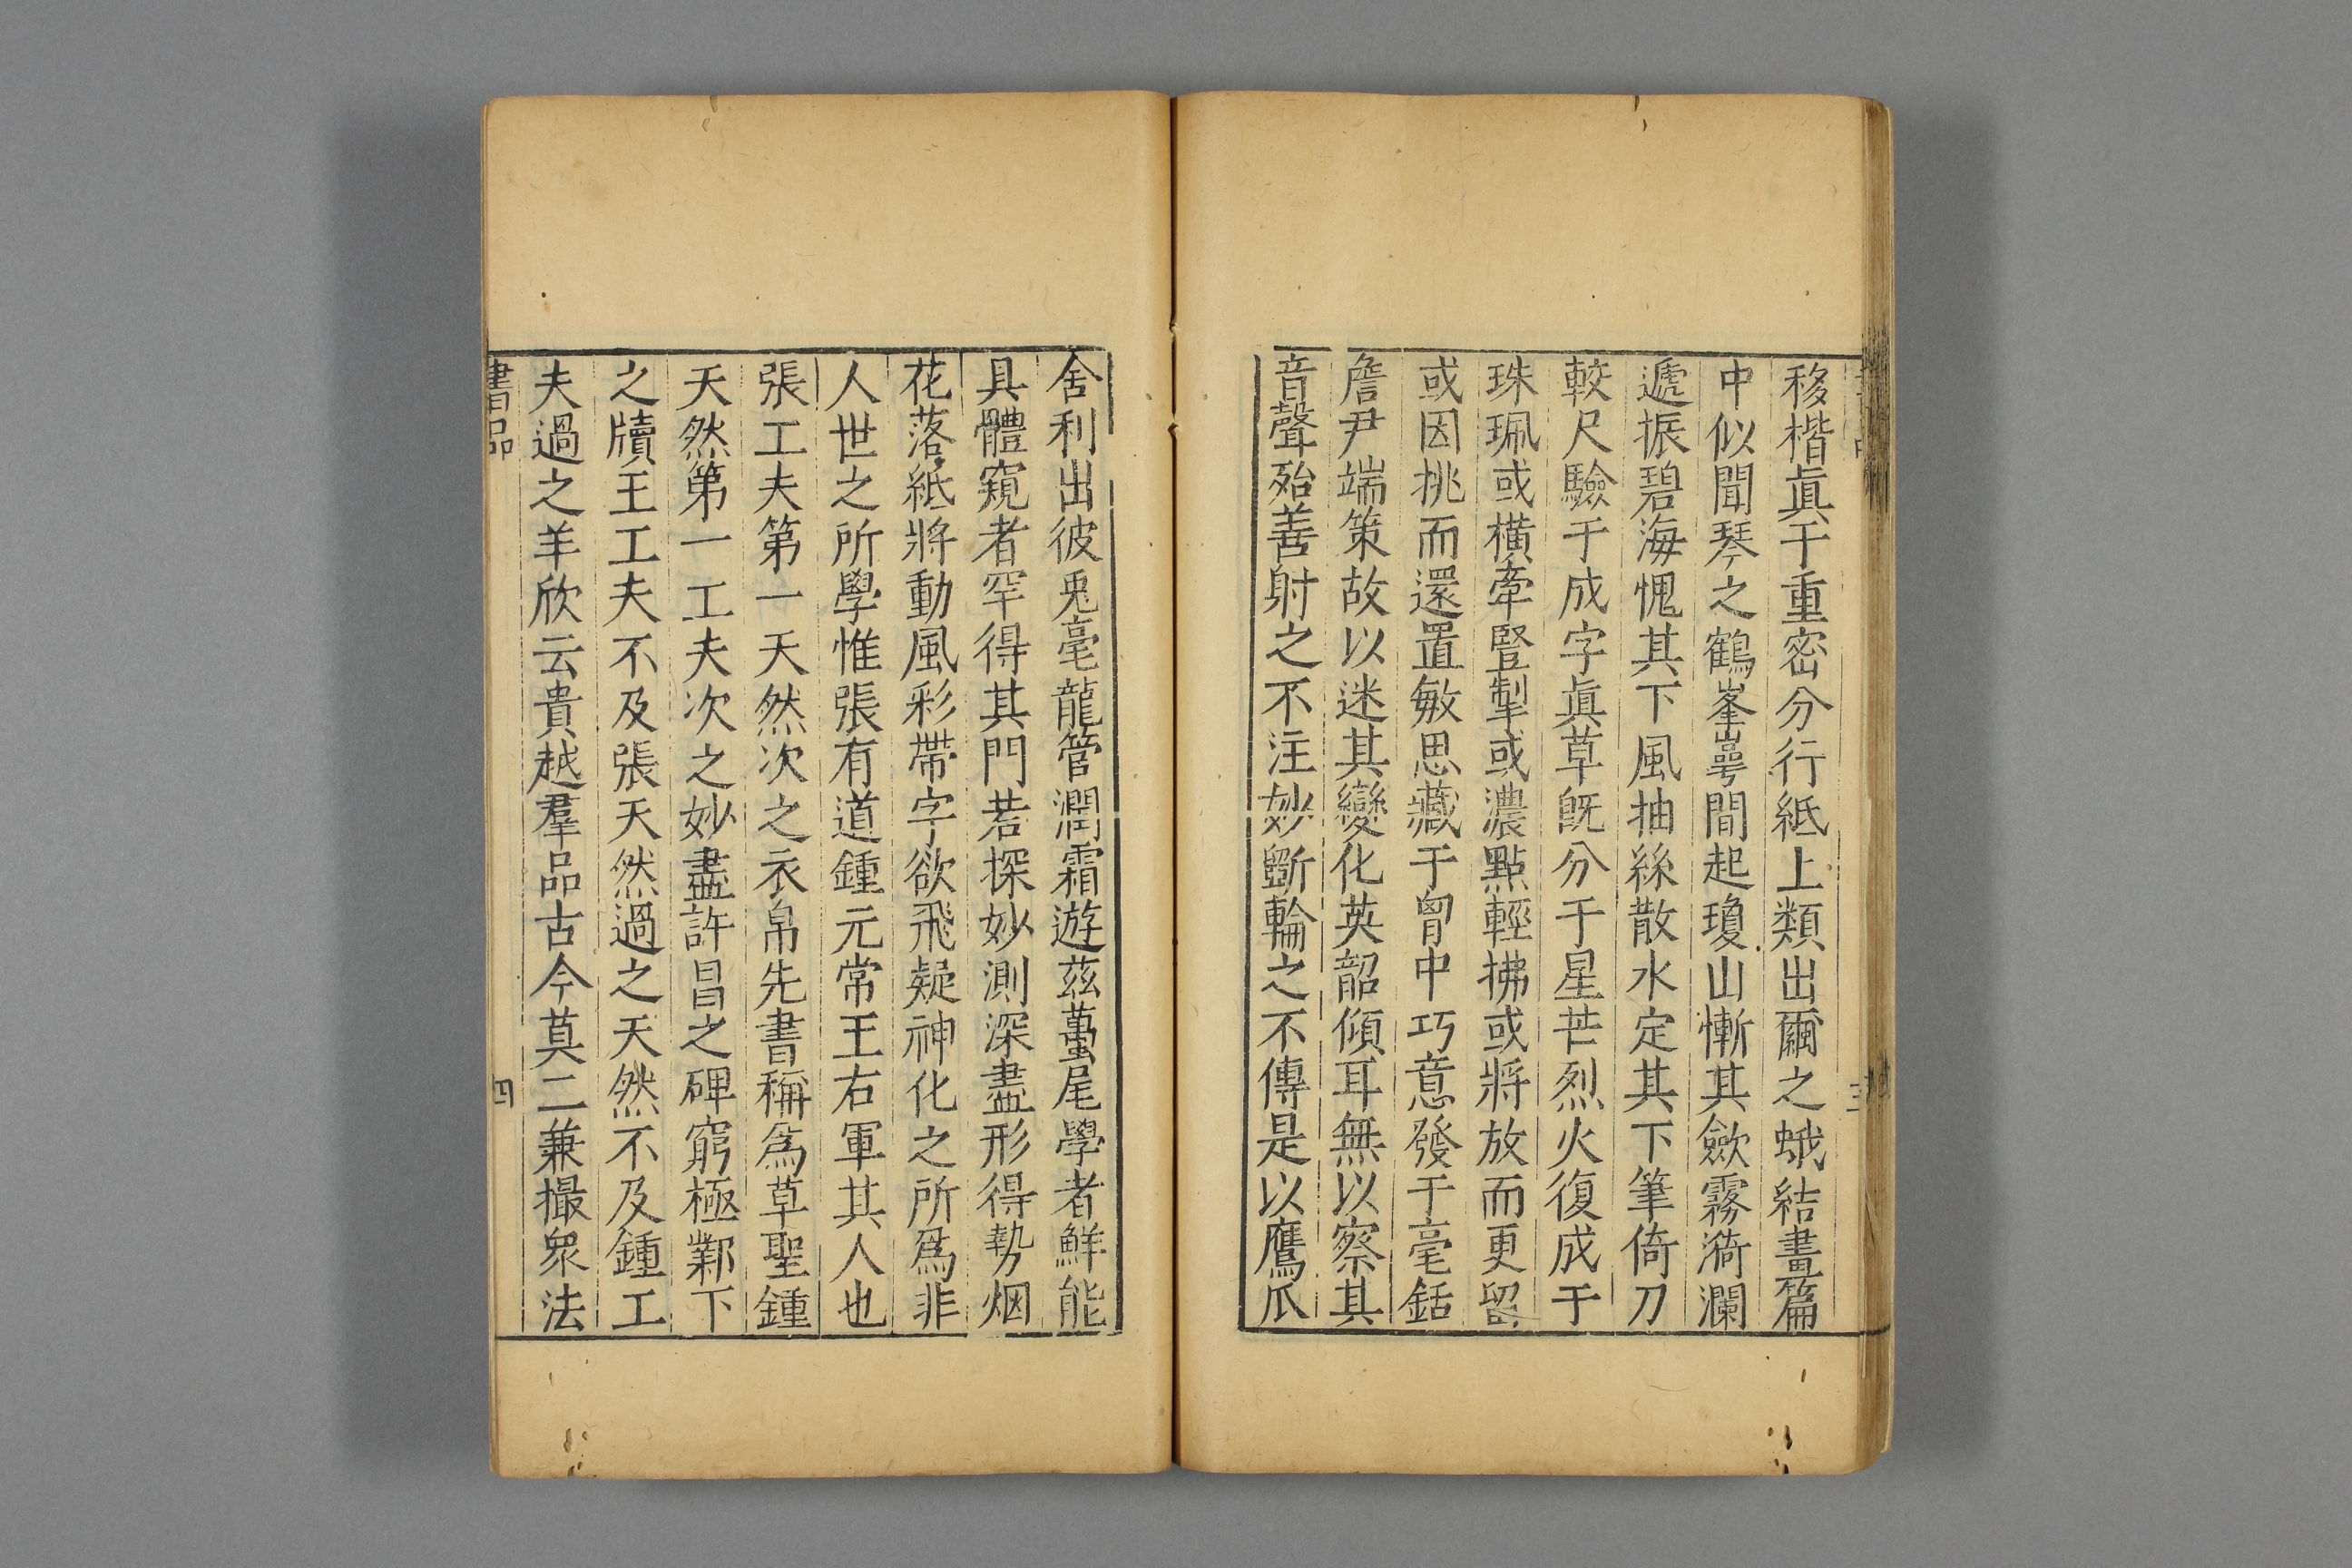 移楷眞于重密分行紙上類出𠁊之蛾結畫篇
中似聞琴之鶴峯崿間起瓊山慚其歛霧漪瀾
遞振碧海愧其下風抽絲散水定其下筆倚刀
較尺驗于成字眞草旣分于星芒烈火復成于
珠珮或橫牽豎掣或濃點輕拂或將放而更留
或因挑而還置敏思藏于胷中巧意發于毫銛
詹尹端策故以迷其變化英韶傾耳無以察其
音聲殆善射之不注妙斵輪之不傳是以鷹爪
舍利出彼兎毫龍管潤霜遊茲蠆尾學者鮮能
具體窺者罕得其門若探妙測深盡形得勢烟
花落紙將動風彩帶字欲飛疑神化之所爲非
人世之所學惟張有道鍾元常王右軍其人也
張工夫第一天然次之衣帛先書稱爲草聖鍾
天然第一工夫次之妙盡許昌之碑窮極鄴下
之牘王工夫不及張天然過之天然不及鍾工
夫過之羊欣云貴越羣品古今莫二兼撮衆法
書品
四